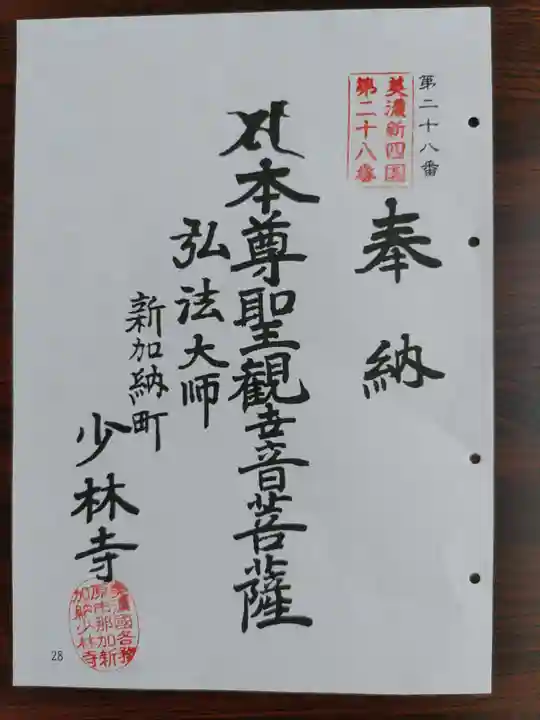 第二十八番
美濃新四国
第二十八番
奉納
本尊聖観世音菩薩
弘法大師
新加納町
少林寺
美濃國各務
原市那加新
加納少林寺
28